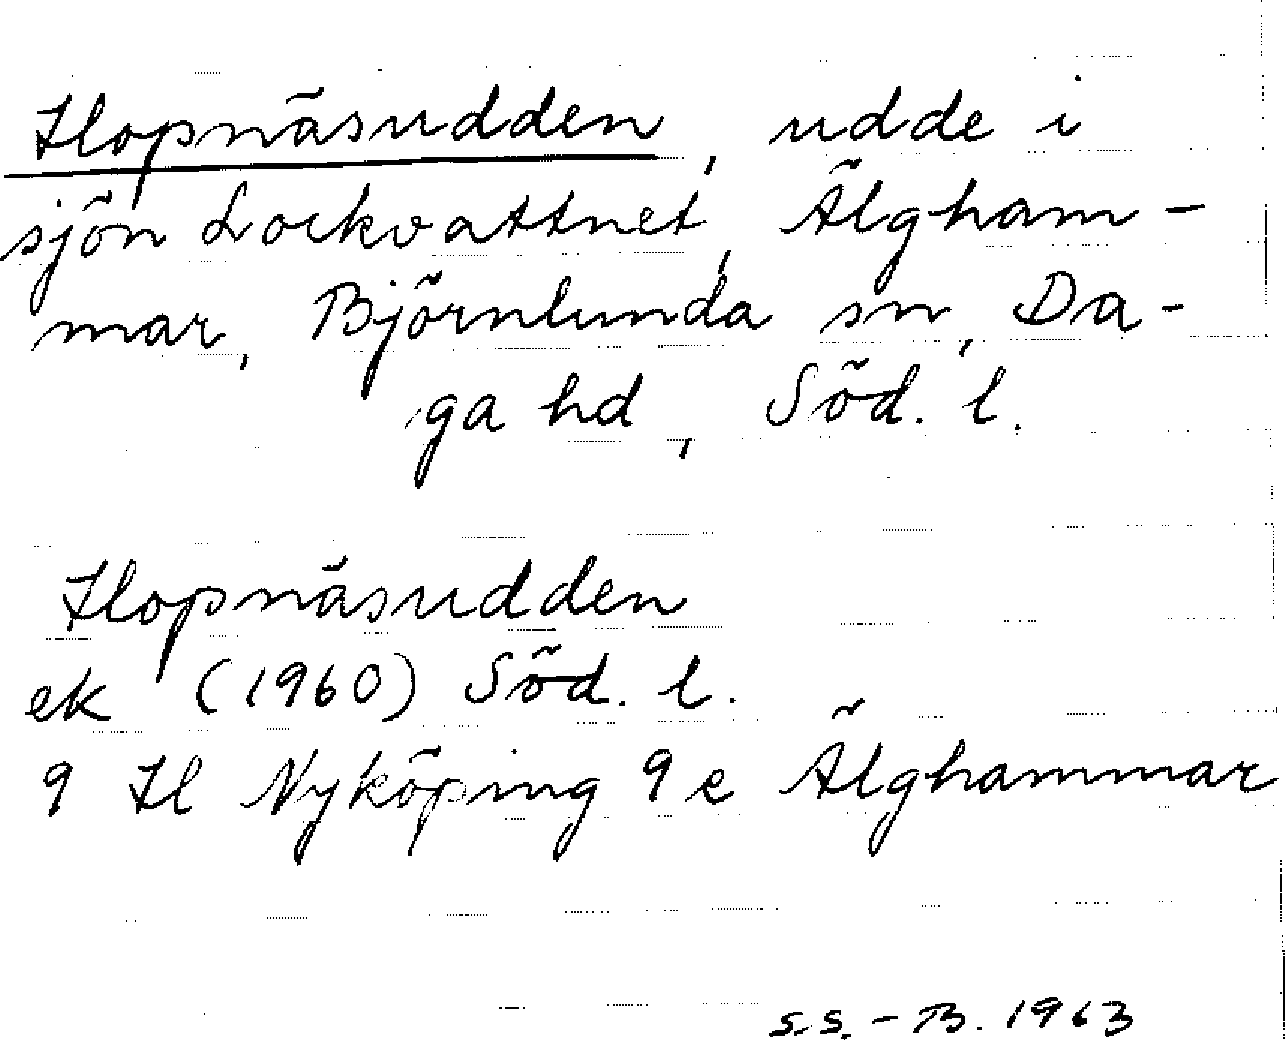 Hopnäsudden, udde i
sjön Lockvattnet, Älgham-
mar, Björnlunda sn, Da-
ga hd, Söd. l.
Hopnäsudden
ek (1960) Söd. l.
9 H Nyköping 9 e Älghammar
S.S.-B. 1963